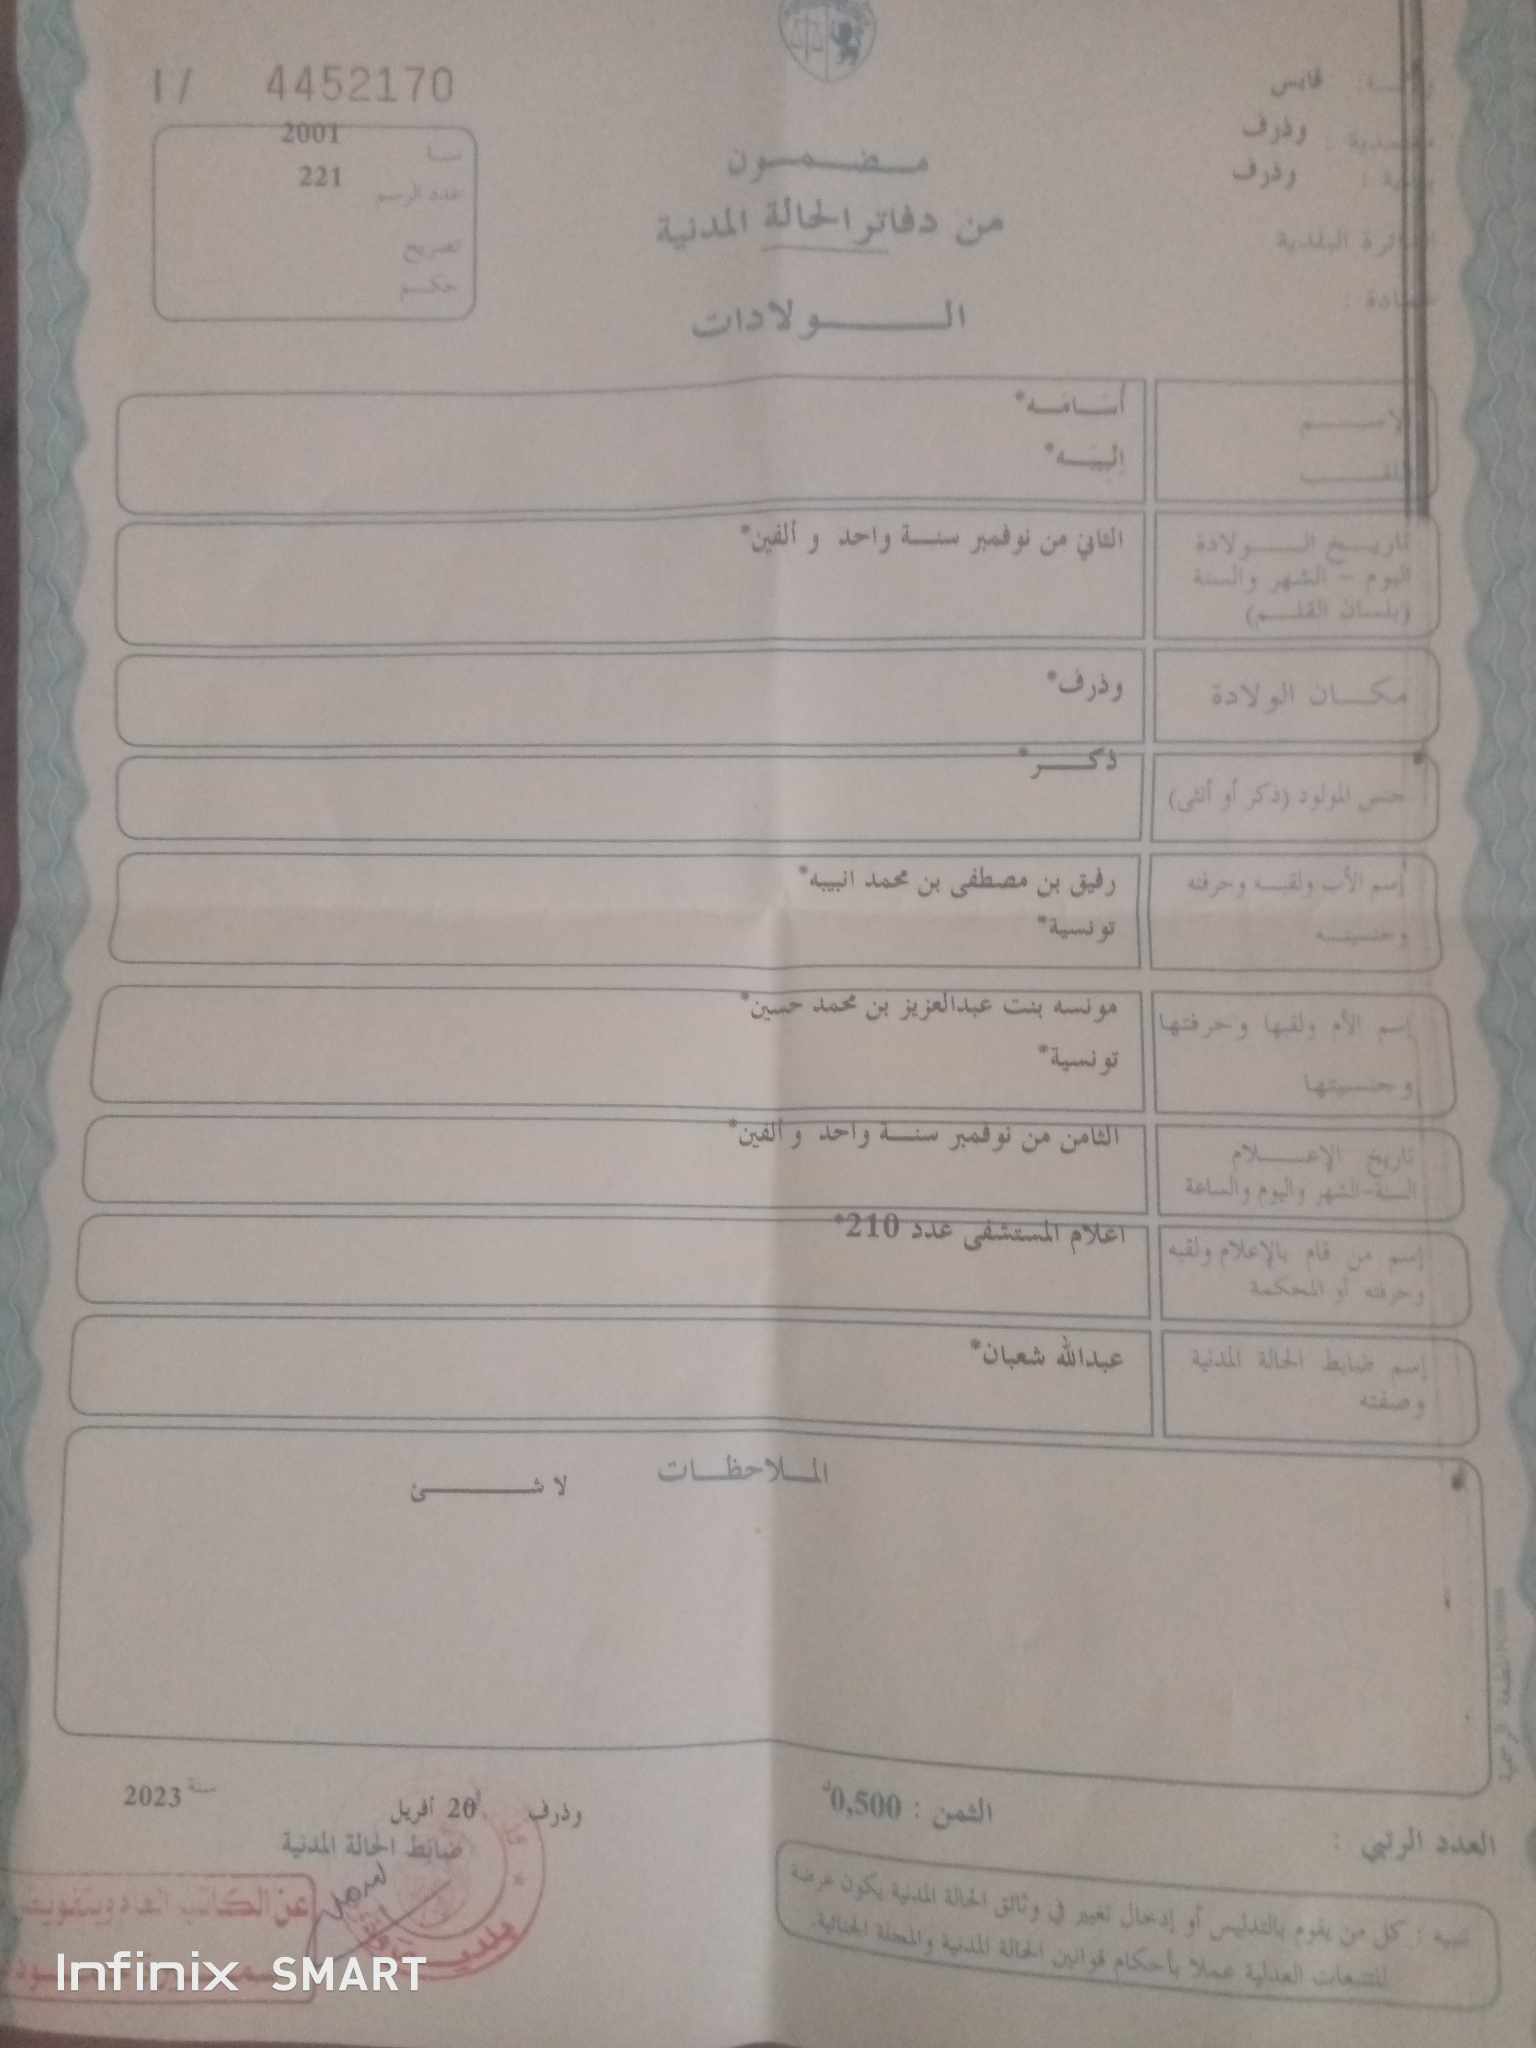 I/ 4452170
قابس
وذرف
وذرف
الدائرة البلدية
2001
عدد الرسم 221
تصريح
حكم
مضمون
من دفاتر الحالة المدنية
الولادات
الاسم أسامه*
اللقب
تاريخ الولادة الثاني من نوفمبر سنة واحد و ألفين*
اليوم - الشهر والسنة
(بلسان القلم)
مكان الولادة وذرف*
جنس المولود (ذكر أو أنثى) ذكر*
إسم الأب ولقبه وحرفته رفيق بن مصطفى بن محمد انبيبه*
وجنسيته تونسية*
إسم الأم ولقبها وحرفتها مونسه بنت عبدالعزيز بن محمد حسين*
وجنسيتها تونسية*
تاريخ الإعلام الثامن من نوفمبر سنة واحد و ألفين*
السنة-الشهر واليوم والساعة
إسم من قام بالإعلام ولقبه اعلام المستشفى عدد 210*
وحرفته أو المحكمة
إسم ضابط الحالة المدنية عبدالله شعبان*
وصفته
الملاحظات
لا شئ
العدد الرتبي :
الثمن : 0,500د
وذرف 20 أفريل سنة 2023
ضابط الحالة المدنية
تنبيه : كل من يقوم بالتدليس أو إدخال تغيير في وثائق الحالة المدنية يكون عرضة
للتتبعات العدلية عملا بأحكام قوانين الحالة المدنية والمجلة الجنائية.
عن الكاتب العام وبتفويض
بلدية
Infinix SMART